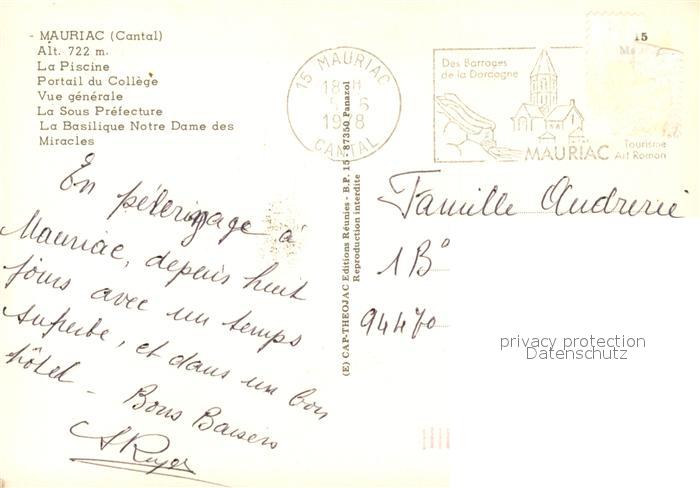 - MAURIAC (Cantal)
Alt. 722 m.
La Piscine
Portail du Collège
Vue générale
La Sous Préfecture
La Basilique Notre Dame des
Miracles
15 MAURIAC
18H
5 - 6
1978
CANTAL
Des Barrages
de la Dordogne
MAURIAC
Tourisme
Art Roman
15
En pélerinage à
Mauriac, depuis huit
jours avec un temps
superbe, et dans un bon
hôtel - Bons Baisers
(E) CAP-THEOJAC Editions Réunies - B.P. 15 - 87350 Panazol
Reproduction interdite
Famille
1 B°
94470
privacy protection
Datenschutz